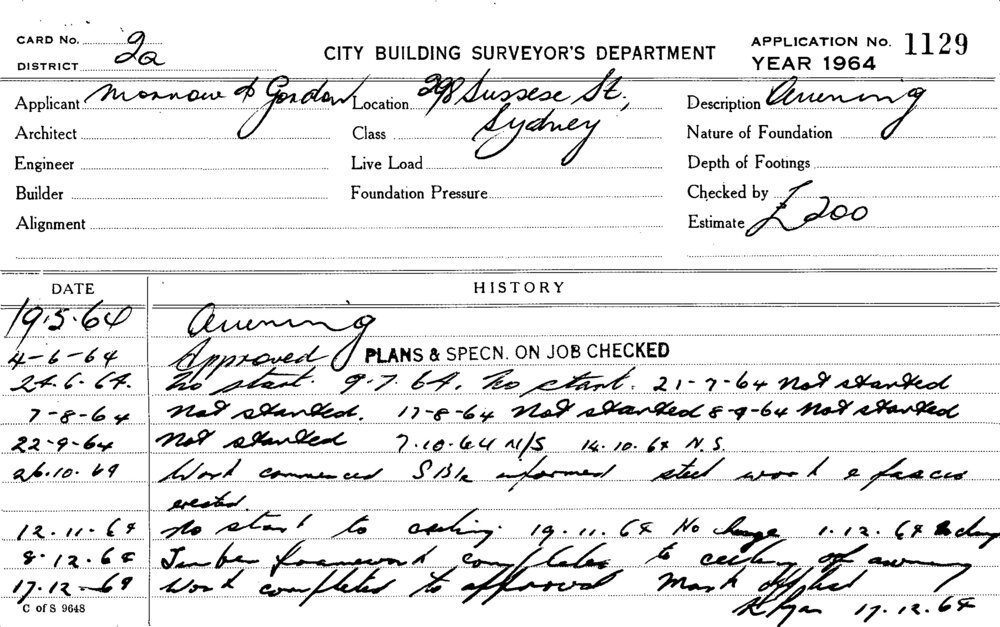 CARD No. 2a CITY BUILDING SURVEYOR'S DEPARTMENT APPLICATION No. 1129
DISTRICT YEAR 1964
Applicant Morrow & Gordon Location 298 Sussex St., Description Awning
Architect Class Sydney Nature of Foundation
Engineer Live Load Depth of Footings
Builder Foundation Pressure Checked by
Alignment Estimate £200
DATE HISTORY
19.5.64 Awning
4-6-64 Approved PLANS & SPECN. ON JOB CHECKED
24.6.64. No start. 9.7.64. No start. 21-7-64 Not started
7-8-64 Not started. 17-8-64 Not started 8-9-64 Not started
22-9-64 Not started 7.10.64 N/S 14.10.64 N.S.
26.10.64 Work commenced informed steel work & fascia
erected
12.11.64 No start to ceiling. 19.11.64 No change 1.12.64 No change
8.12.64 Timber framework completed to ceiling of awning
17.12.64 Work completed to approval
17.12.64
C of S 9648